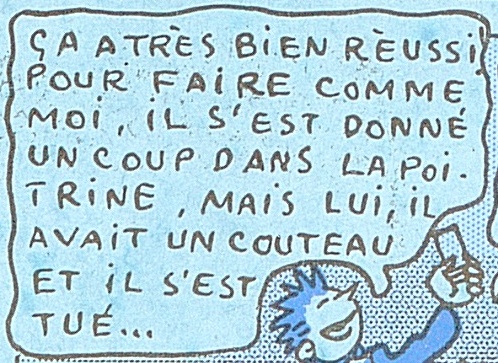 ÇA A TRÈS BiEN RÈUSSi,
POUR FAiRE COMME
MOi, iL S'EST DONNÉ
UN COUP DANS LA POi-
TRiNE, MAiS LUi, iL
AVAiT UN COUTEAU
ET iL S'EST
TUÉ...